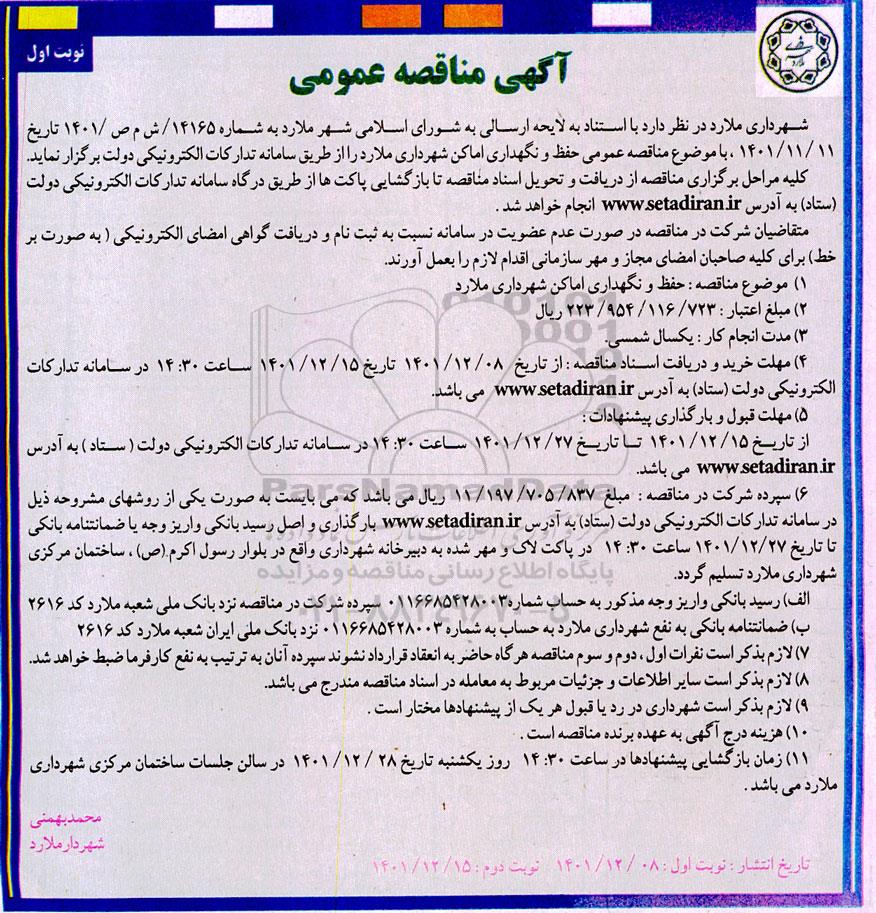 نوبت اول
آگهی مناقصه عمومی
شهرداری ملارد در نظر دارد با استناد به لایحه ارسالی به شورای اسلامی شهر ملارد به شماره ۱۴۱۶۵/ ش م ص /۱۴۰۱ تاریخ
۱۴۰۱/۱۱/۱۱ ، با موضوع مناقصه عمومی حفظ و نگهداری اماکن شهرداری ملارد را از طریق سامانه تدارکات الکترونیکی دولت برگزار نماید.
کلیه مراحل برگزاری مناقصه از دریافت و تحویل اسناد مناقصه تا بازگشایی پاکت ها از طریق درگاه سامانه تدارکات الکترونیکی دولت
(ستاد) به آدرس www.setadiran.ir انجام خواهد شد .
متقاضیان شرکت در مناقصه در صورت عدم عضویت در سامانه نسبت به ثبت نام و دریافت گواهی امضای الکترونیکی ( به صورت بر
خط) برای کلیه صاحبان امضای مجاز و مهر سازمانی اقدام لازم را بعمل آورند.
۱) موضوع مناقصه : حفظ و نگهداری اماکن شهرداری ملارد
۲) مبلغ اعتبار : ۲۲۳/۹۵۴/۱۱۶/۷۲۳ ریال
۳) مدت انجام کار : یکسال شمسی.
۴) مهلت خرید و دریافت اسناد مناقصه : از تاریخ ۱۴۰۱/۱۲/۰۸ تاریخ ۱۴۰۱/۱۲/۱۵ ساعت ۱۴:۳۰ در سامانه تدارکات
الکترونیکی دولت (ستاد) به آدرس www.setadiran.ir می باشد.
۵) مهلت قبول و بارگذاری پیشنهادات :
از تاریخ ۱۴۰۱/۱۲/۱۵ تا تاریخ ۱۴۰۱/۱۲/۲۷ ساعت ۱۴:۳۰ در سامانه تدارکات الکترونیکی دولت ( ستاد ) به آدرس
www.setadiran.ir می باشد.
۶) سپرده شرکت در مناقصه : مبلغ ۱۱/۱۹۷/۷۰۵/۸۳۷ ریال می باشد که می بایست به صورت یکی از روشهای مشروحه ذیل
در سامانه تدارکات الکترونیکی دولت (ستاد) به آدرس www.setadiran.ir بارگذاری و اصل رسید بانکی واریز وجه یا ضمانتنامه بانکی
تا تاریخ ۱۴۰۱/۱۲/۲۷ ساعت ۱۴:۳۰ در پاکت لاک و مهر شده به دبیرخانه شهرداری واقع در بلوار رسول اکرم (ص) ، ساختمان مرکزی
شهرداری ملارد تسلیم گردد.
الف) رسید بانکی واریز وجه مذکور به حساب شماره ۰۱۱۶۶۸۵۴۲۸۰۰۲ سپرده شرکت در مناقصه نزد بانک ملی شعبه ملارد کد ۲۶۱۶
ب) ضمانتنامه بانکی به نفع شهرداری ملارد به حساب به شماره ۰۱۱۶۶۸۵۴۲۸۰۰۳ نزد بانک ملی ایران شعبه ملارد کد ۲۶۱۶
۷) لازم بذکر است نفرات اول ، دوم و سوم مناقصه هر گاه حاضر به انعقاد قرارداد نشوند سپرده آنان به ترتیب به نفع کارفرما ضبط خواهد شد.
۸) لازم بذکر است سایر اطلاعات و جزئیات مربوط به معامله در اسناد مناقصه مندرج می باشد.
۹) لازم بذکر است شهرداری در رد یا قبول هر یک از پیشنهادها مختار است .
۱۰) هزینه درج آگهی به عهده برنده مناقصه است .
۱۱) زمان بازگشایی پیشنهادها در ساعت ۱۴:۳۰ روز یکشنبه تاریخ ۱۴۰۱/۱۲/۲۸ در سالن جلسات ساختمان مرکزی شهرداری
ملارد می باشد .
محمد بهمنی
شهردار ملارد
تاریخ انتشار : نوبت اول : ۱۴۰۱/۱۲/۰۸ نوبت دوم : ۱۴۰۱/۱۲/۱۵
ParsNamadData
پایگاه اطلاع رسانی مناقصه و مزایده